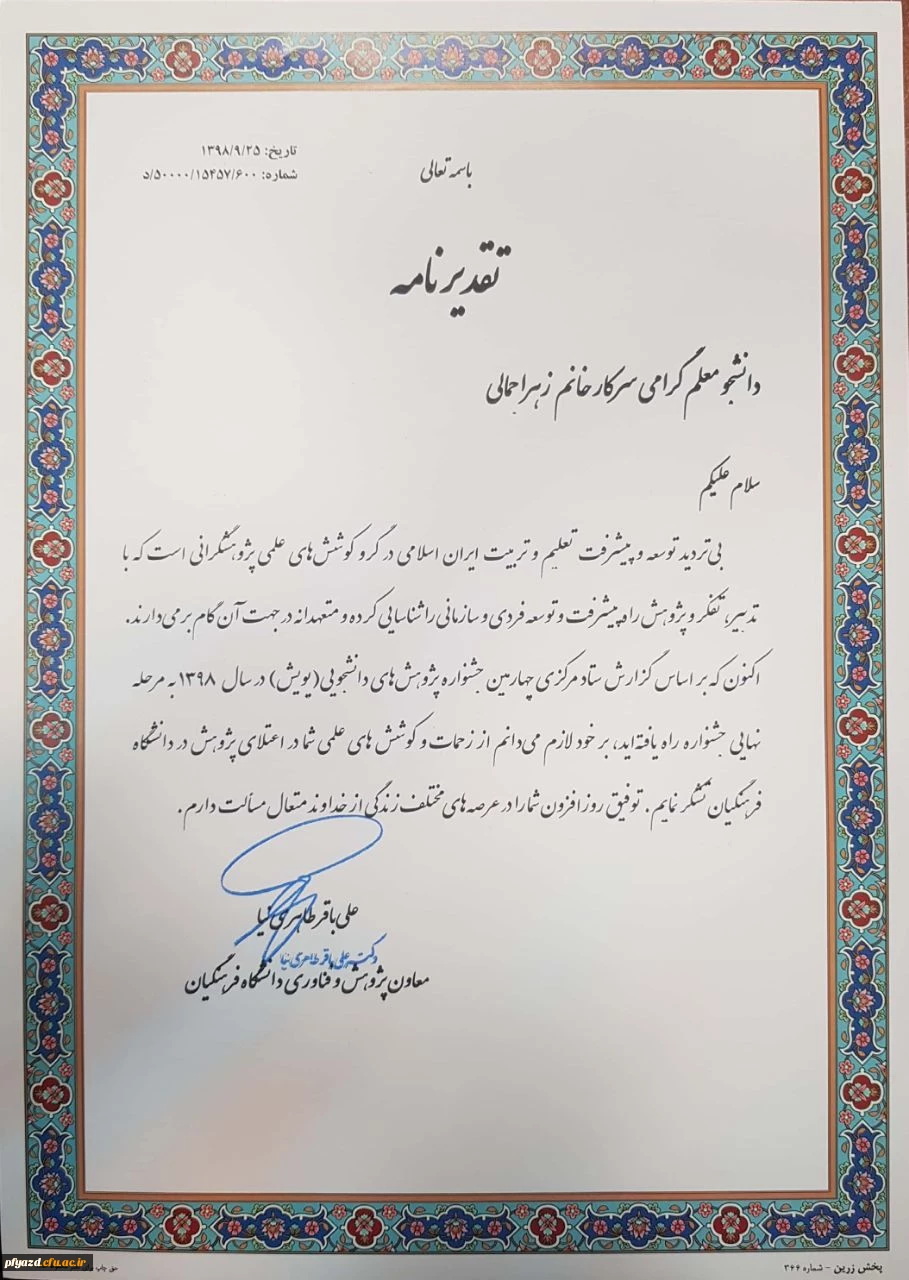 تاریخ: ۱۳۹۸/۹/۲۵
شماره: ۵۰۰۰۰/۱۵۴۵۷/۶۰۰/د
باسمه تعالی
تقدیرنامه
دانشجو معلم گرامی سرکار خانم زهرا جمالی
سلام علیکم
بی‌تردید توسعه و پیشرفت تعلیم و تربیت ایران اسلامی در گرو کوشش‌های علمی پژوهشگرانی است که با
تدبیر، تفکر و پژوهش راه پیشرفت و توسعه فردی و سازمانی را شناسایی کرده و متعهدانه در جهت آن گام برمی‌دارند.
اکنون که بر اساس گزارش ستاد مرکزی چهارمین جشنواره پژوهش‌های دانشجویی(پویش) در سال ۱۳۹۸ به مرحله
نهایی جشنواره راه یافته‌اید، بر خود لازم می‌دانم از زحمات و کوشش های علمی شما در اعتلای پژوهش در دانشگاه
فرهنگیان تشکر نمایم. توفیق روزافزون شما را در عرصه های مختلف زندگی از خداوند متعال مسألت دارم.
علی باقر طاهری نیا
دکتر علی باقر طاهری نیا
معاون پژوهش و فناوری دانشگاه فرهنگیان
پخش زرین - شماره ۳۶۶
حق چاپ
pfyazd.cfu.ac.ir